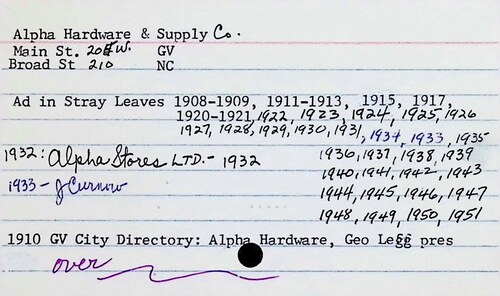 Alpha Hardware & Supply Co.
Main St. 208 W. GV
Broad St 210 NC
Ad in Stray Leaves 1908-1909, 1911-1913, 1915, 1917,
1920-1921, 1922, 1923, 1924, 1925, 1926
1927, 1928, 1929, 1930, 1931, 1934, 1933, 1935
1932: Alpha Stores LTD. - 1932 1936, 1937, 1938, 1939
1933 - J Curnow 1940, 1941, 1942, 1943
1944, 1945, 1946, 1947
1948, 1949, 1950, 1951
1910 GV City Directory: Alpha Hardware, Geo Legg pres
over